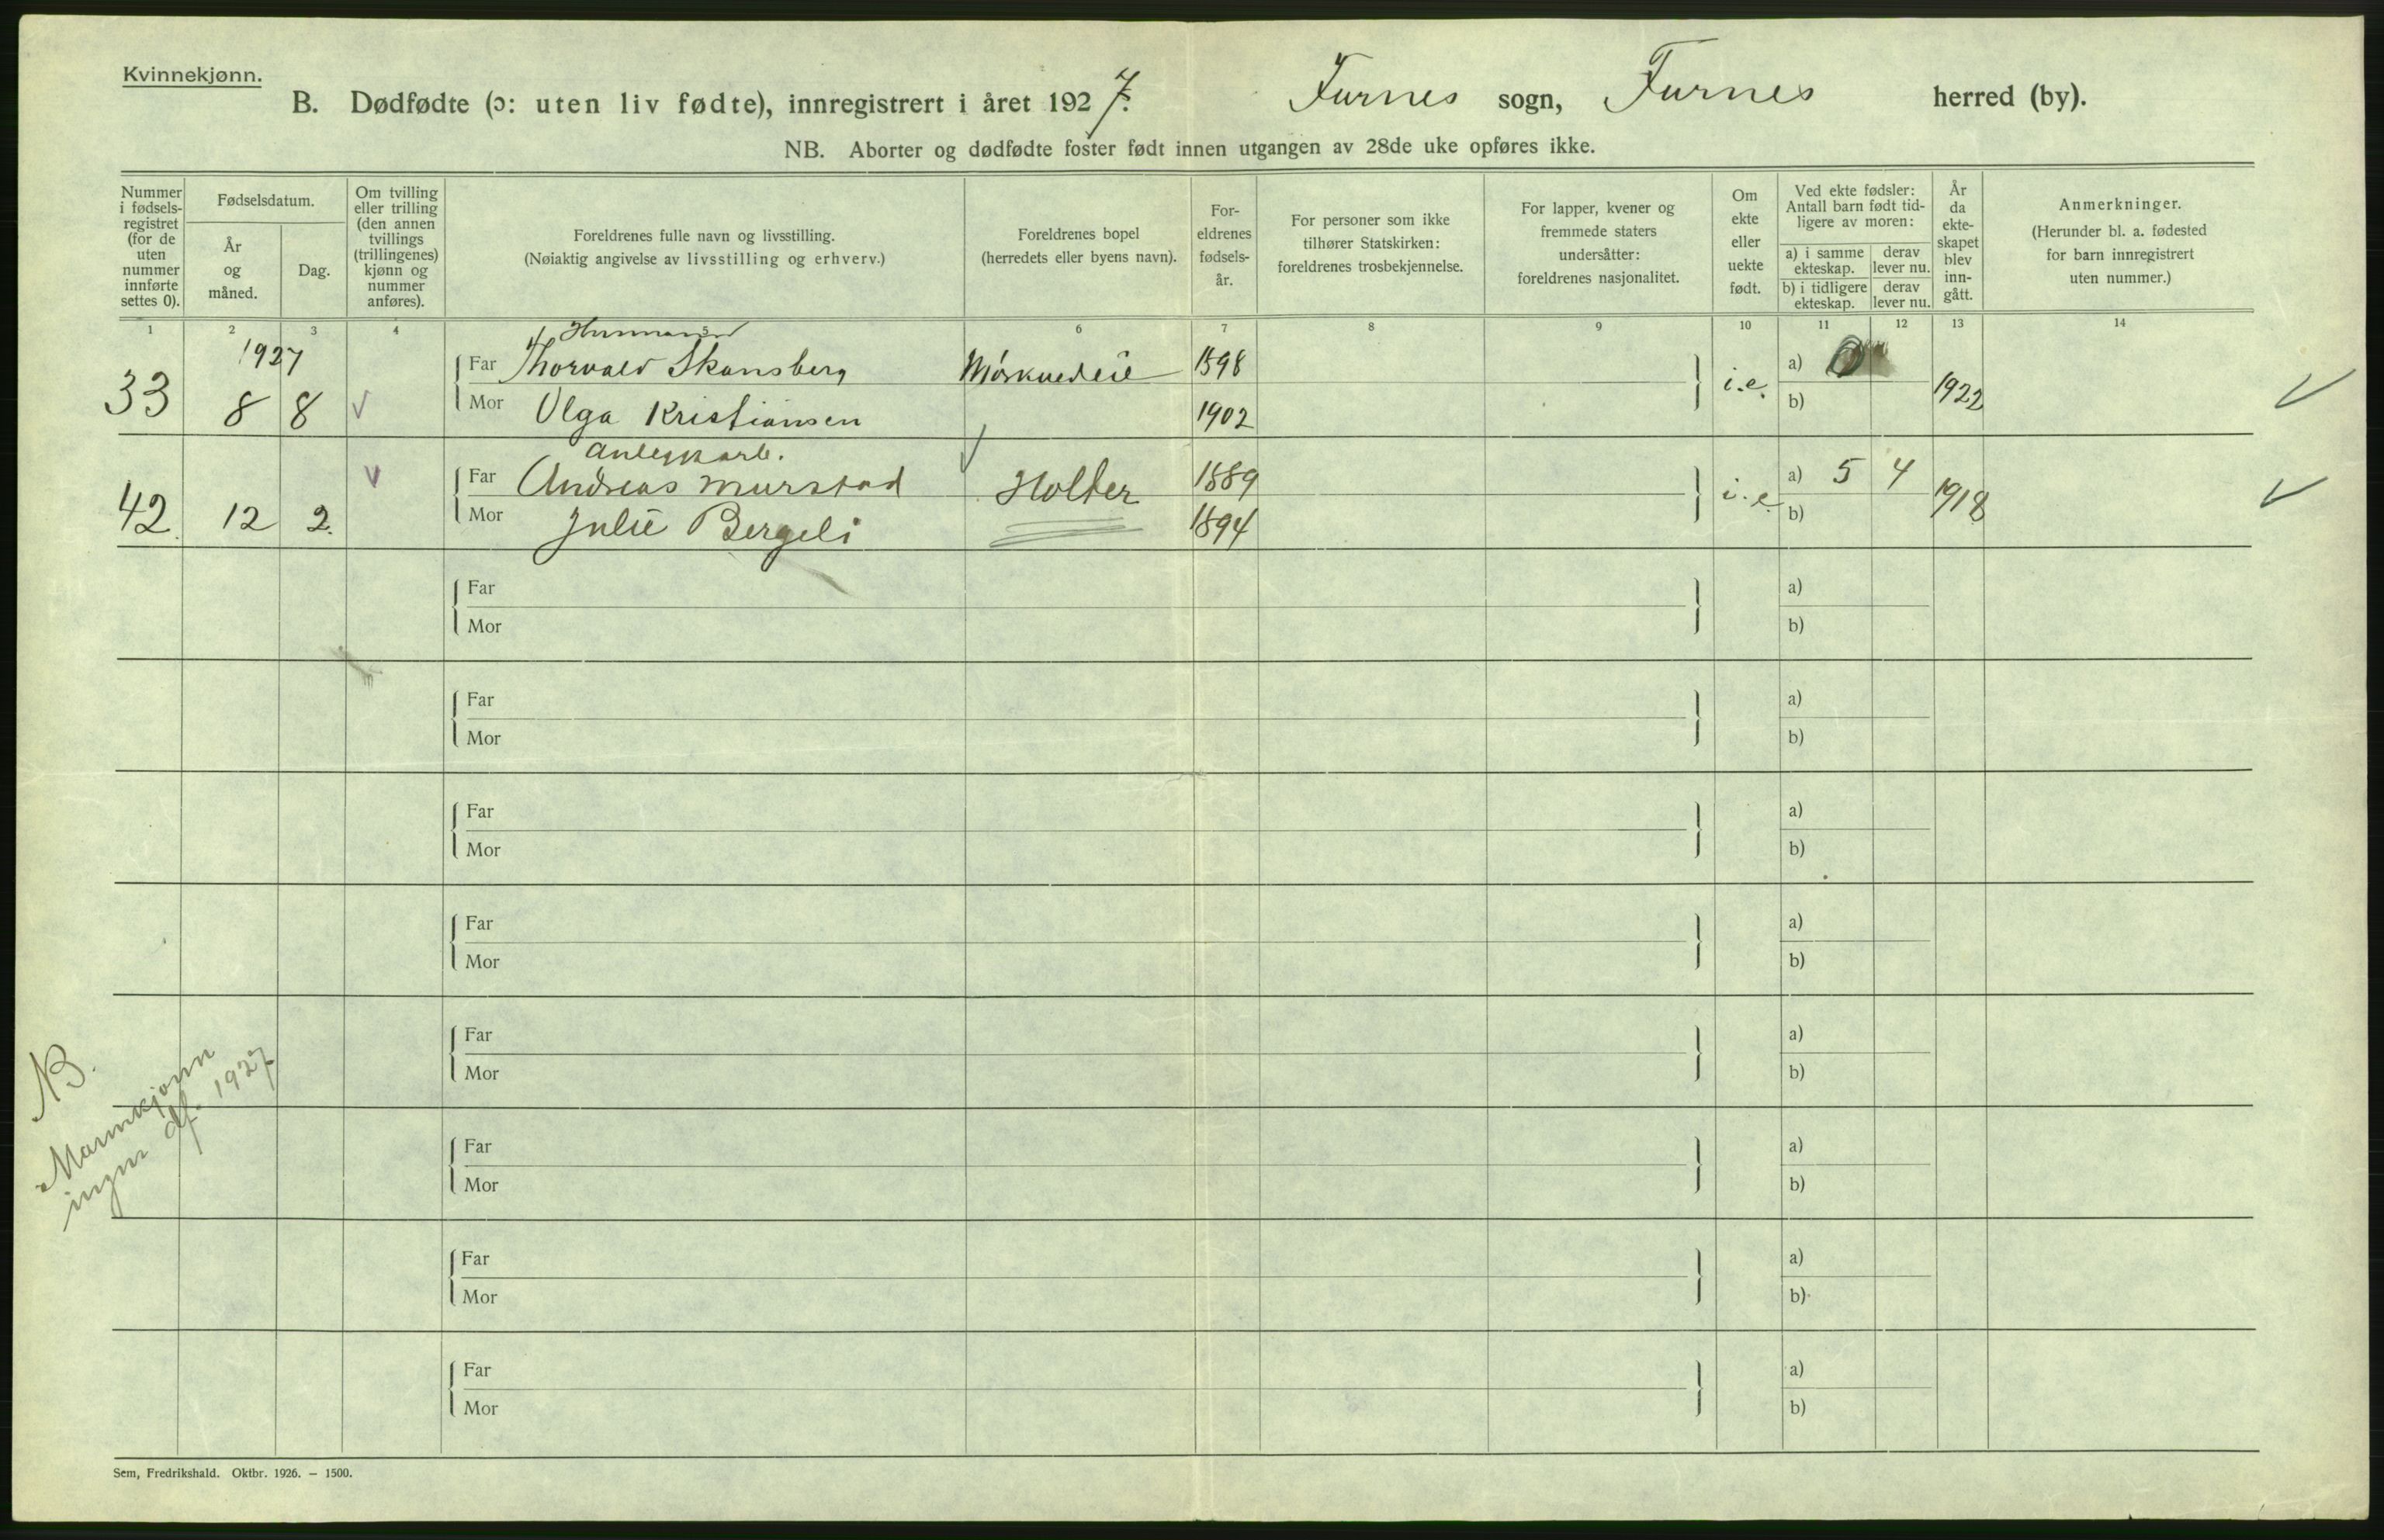 Kvinnekjønn.
B. Dødfødte (ɔ: uten liv fødte), innregistrert i året 1927. Furnes sogn, Furnes herred (by).
NB. Aborter og dødfødte foster født innen utgangen av 28de uke opføres ikke.
Nummer i fødsels-registret (for de uten nummer innførte settes 0).
Fødselsdatum.
År og måned.
Dag.
Om tvilling eller trilling (den annen tvillings (trillingenes) kjønn og nummer anføres).
Foreldrenes fulle navn og livsstilling.
(Nøiaktig angivelse av livsstilling og erhverv.)
Foreldrenes bopel
(herredets eller byens navn).
For-eldrenes fødsels-år.
For personer som ikke tilhører Statskirken: foreldrenes trosbekjennelse.
For lapper, kvener og fremmede staters undersåtter: foreldrenes nasjonalitet.
Om ekte eller uekte født.
Ved ekte fødsler: Antall barn født tid-ligere av moren:
a) i samme ekteskap. derav lever nu.
b) i tidligere ekteskap. derav lever nu.
År da ekte-skapet blev inn-gått.
Anmerkninger.
(Herunder bl. a. fødested for barn innregistrert uten nummer.)
1 2 3 4 5 6 7 8 9 10 11 12 13 14
1927
33 8 8 V
Far Thorvald Skansberg 1898 i.e. a) 0 1922 V
Mor Olga Kristiansen 1902 b)
42 12 2. V
Far Andreas Murstad Holter 1889 i.e. a) 5 4 1918 V
Mor Julie Bergeli 1894 b)
Far a)
Mor b)
Far a)
Mor b)
Far a)
Mor b)
Far a)
Mor b)
Far a)
Mor b)
Far a)
Mor b)
Far a)
Mor b)
Far a)
Mor b)
NB.
Mannkjønn
ingen df. 1927
Sem, Fredrikshald. Oktbr. 1926. — 1500.